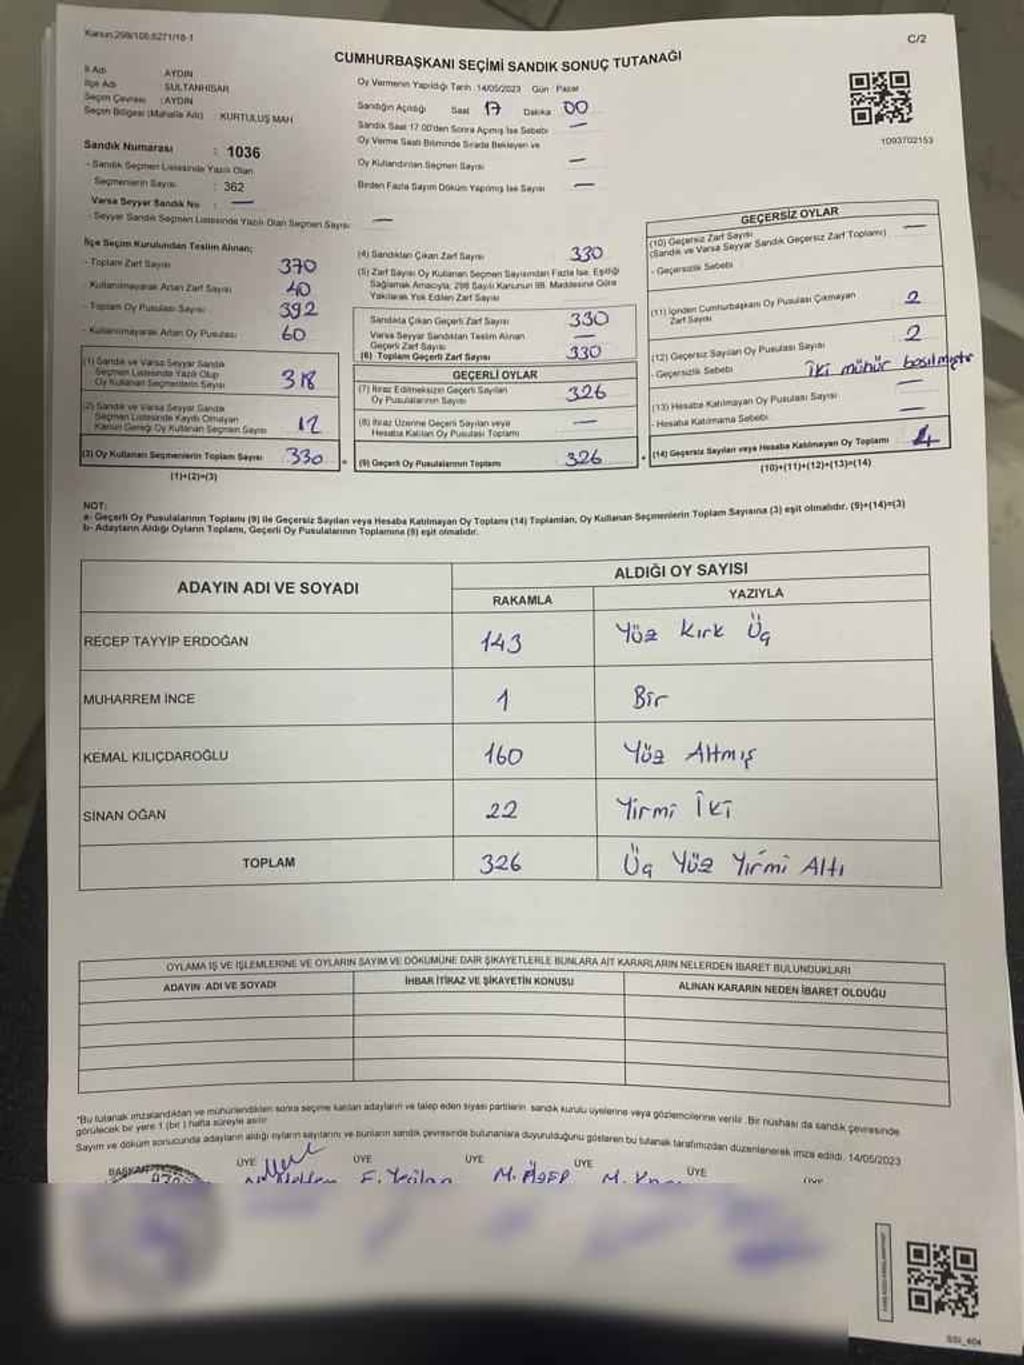 Kanun:298/106,6271/18-1
C/2
CUMHURBAŞKANI SEÇİMİ SANDIK SONUÇ TUTANAĞI
İl Adı : AYDIN
İlçe Adı : SULTANHİSAR
Seçim Çevresi : AYDIN
Seçim Bölgesi (Mahalle Adı) : KURTULUŞ MAH
Sandık Numarası : 1036
- Sandık Seçmen Listesinde Yazılı Olan
Seçmenlerin Sayısı : 362
Varsa Seyyar Sandık No : —
- Seyyar Sandık Seçmen Listesinde Yazılı Olan Seçmen Sayısı : —
Oy Vermenin Yapıldığı Tarih : 14/05/2023 Gün : Pazar
Sandığın Açıldığı Saat 17 Dakika 00
Sandık Saat 17.00'den Sonra Açılmış İse Sebebi —
Oy Verme Saati Bitiminde Sırada Bekleyen ve
Oy Kullandırılan Seçmen Sayısı —
Birden Fazla Sayım Döküm Yapılmış İse Sayısı —
1093702153
İlçe Seçim Kurulundan Teslim Alınan;
- Toplam Zarf Sayısı 370
- Kullanılmayarak Artan Zarf Sayısı 40
- Toplam Oy Pusulası Sayısı 392
- Kullanılmayarak Artan Oy Pusulası 60
(1) Sandık ve Varsa Seyyar Sandık
Seçmen Listesinde Yazılı Olup
Oy Kullanan Seçmenlerin Sayısı 318
(2) Sandık ve Varsa Seyyar Sandık
Seçmen Listesinde Kaydı Olmayan
Kanun Gereği Oy Kullanan Seçmen Sayısı 12
(3) Oy Kullanan Seçmenlerin Toplam Sayısı 330
(1)+(2)=(3)
(4) Sandıktan Çıkan Zarf Sayısı 330
(5) Zarf Sayısı Oy Kullanan Seçmen Sayısından Fazla İse, Eşitliği
Sağlamak Amacıyla, 298 Sayılı Kanunun 98. Maddesine Göre
Yakılarak Yok Edilen Zarf Sayısı
Sandıkta Çıkan Geçerli Zarf Sayısı 330
Varsa Seyyar Sandıktan Teslim Alınan
Geçerli Zarf Sayısı —
(6) Toplam Geçerli Zarf Sayısı 330
GEÇERLİ OYLAR
(7) İtiraz Edilmeksizin Geçerli Sayılan
Oy Pusulalarının Sayısı 326
(8) İtiraz Üzerine Geçerli Sayılan veya
Hesaba Katılan Oy Pusulası Toplamı —
(9) Geçerli Oy Pusulalarının Toplamı 326
GEÇERSİZ OYLAR
(10) Geçersiz Zarf Sayısı —
(Sandık ve Varsa Seyyar Sandık Geçersiz Zarf Toplamı)
- Geçersizlik Sebebi
(11) İçinden Cumhurbaşkanı Oy Pusulası Çıkmayan
Zarf Sayısı 2
(12) Geçersiz Sayılan Oy Pusulası Sayısı 2
- Geçersizlik Sebebi iki mühür basılmıştır
(13) Hesaba Katılmayan Oy Pusulası Sayısı —
- Hesaba Katılmama Sebebi —
(14) Geçersiz Sayılan veya Hesaba Katılmayan Oy Toplamı 4
(10)+(11)+(12)+(13)=(14)
NOT:
a- Geçerli Oy Pusulalarının Toplamı (9) ile Geçersiz Sayılan veya Hesaba Katılmayan Oy Toplamı (14) Toplamları, Oy Kullanan Seçmenlerin Toplam Sayısına (3) eşit olmalıdır. (9)+(14)=(3)
b- Adayların Aldığı Oyların Toplamı, Geçerli Oy Pusulalarının Toplamına (9) eşit olmalıdır.
ADAYIN ADI VE SOYADI
ALDIĞI OY SAYISI
RAKAMLA YAZIYLA
RECEP TAYYİP ERDOĞAN 143 Yüz Kırk Üç
MUHARREM İNCE 1 Bir
KEMAL KILIÇDAROĞLU 160 Yüz Altmış
SİNAN OĞAN 22 Yirmi İki
TOPLAM 326 Üç Yüz Yirmi Altı
OYLAMA İŞ VE İŞLEMLERİNE VE OYLARIN SAYIM VE DÖKÜMÜNE DAİR ŞİKAYETLERLE BUNLARA AİT KARARLARIN NELERDEN İBARET BULUNDUKLARI
ADAYIN ADI VE SOYADI İHBAR İTİRAZ VE ŞİKAYETİN KONUSU ALINAN KARARIN NEDEN İBARET OLDUĞU
"Bu tutanak imzalandıktan ve mühürlendikten sonra seçime katılan adayların ve talep eden siyasi partilerin sandık kurulu üyelerine veya gözlemcilerine verilir. Bir nüshası da sandık çevresinde
görülecek bir yere 1 (bir ) hafta süreyle asılır
Sayım ve döküm sonucunda adayların aldığı oyların sayılarını ve bunların sandık çevresinde bulunanlara duyurulduğunu gösteren bu tutanak tarafımızdan düzenlenerek imza edildi. 14/05/2023
BAŞKAN ÜYE ÜYE ÜYE ÜYE ÜYE
SSI_404